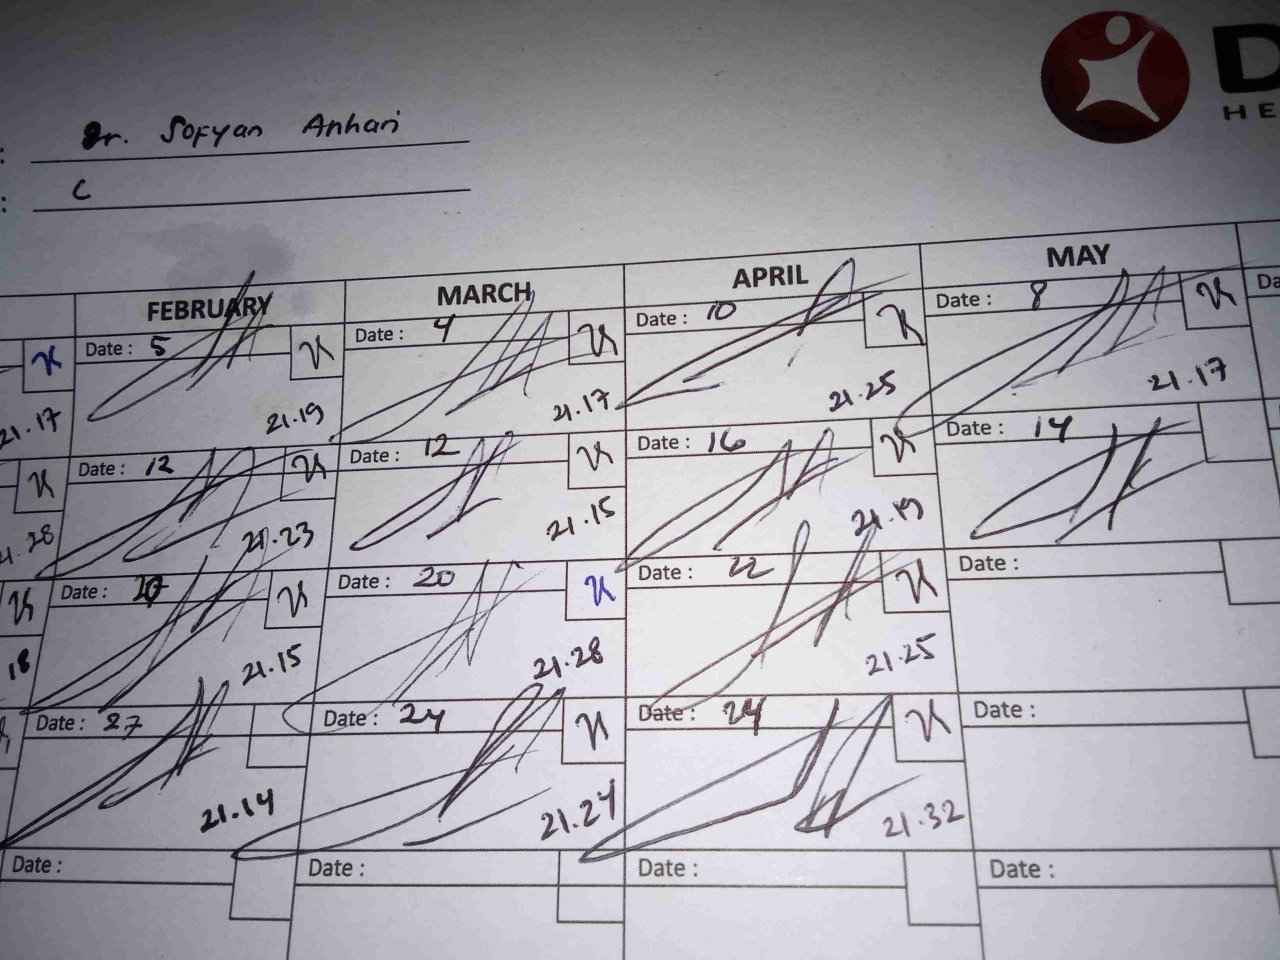 D
HE
: Dr. Sofyan Anhari
: C
FEBRUARY MARCH APRIL MAY
Date : 5 Date : 4 Date : 10 Date : 8 Da
21.17 21.19 21.17 21.25 21.17
Date : 12 Date : 12 Date : 16 Date : 14
21.28 21.23 21.15 21.19
Date : Date : 20 Date : 22 Date :
18 21.15 21.28 21.25
Date : 27 Date : 24 Date : 24 Date :
21.14 21.24 21.32
Date : Date : Date : Date :